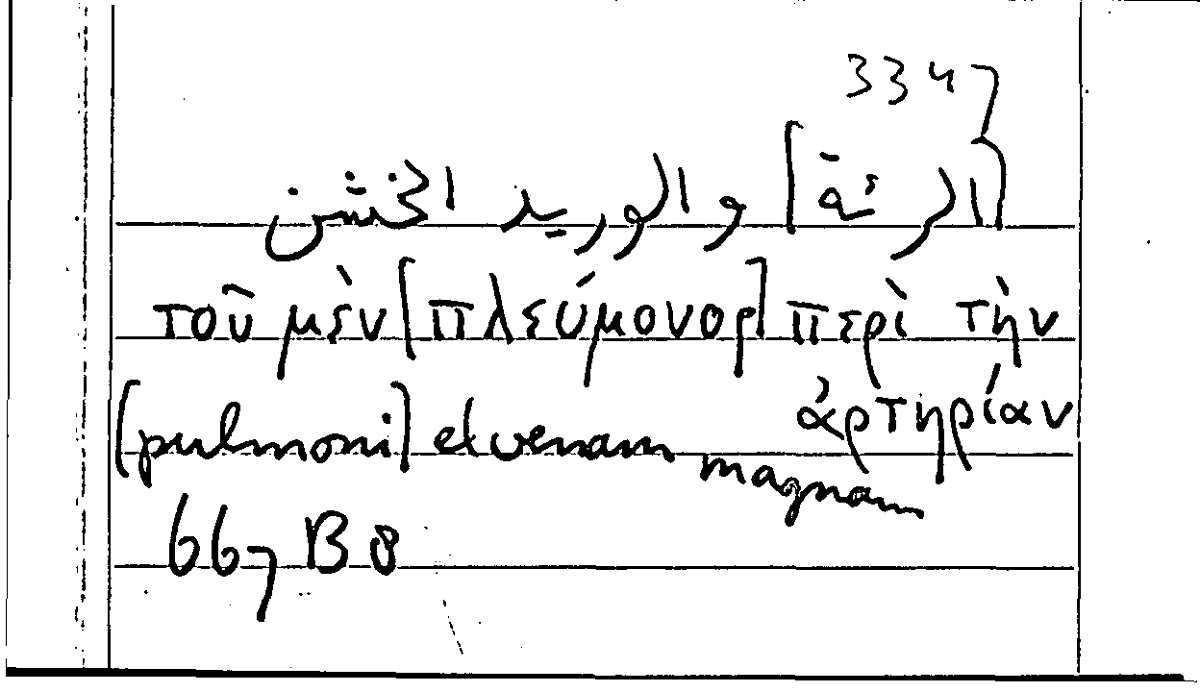 3347
[الرئة] والوريد الخشن
τοῦ μὲν [πλεύμονος] περὶ τὴν
ἀρτηρίαν
[pulmoni] et venam magnam
667 B 8